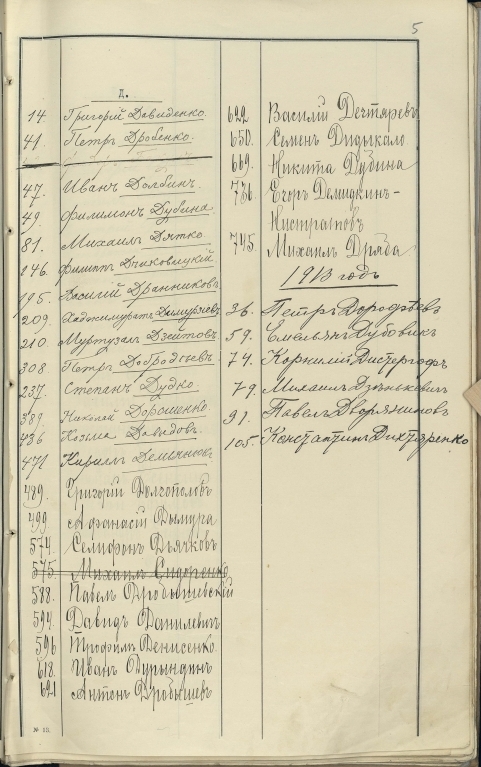 5
Д.
14 Григорій Давиденко.
41. Петръ Дробенко.
47. Иванъ Долбинъ.
49. Филимонъ Дубина.
81. Михаилъ Дятко
146. Филиппъ
195. Василій Дранниковъ
209. Хаджимуратъ
210. Муртузалъ
308. Петръ Добродѣевъ
237. Степанъ Дудко
389. Николай Дорошенко.
436 Козма Давидовъ.
471 Кириллъ Демьянюкъ
489. Григорій Долгополовъ
499. Афанасій Дымура
574. Селифонъ Дьячковъ
575. Михаилъ Сидоренко
588. Павелъ Дробышевскій
594 Давидъ Данилевичъ
596 Трофимъ Денисенко.
618. Иванъ Дурындинъ
621 Антонъ Дробышевъ
622 Василій Дехтяревъ
650. Семенъ Дидыкало
669. Никита Дубина
736. Егоръ Демидкинъ-
Кистрановъ
745. Михаилъ Дряба
1913 годъ
36. Петръ Дорофѣевъ
59. Емельянъ Дубовикъ
74. Корнилій Дистергофъ
79. Михаилъ Дзенькевичъ
91. Павелъ Дворяниновъ
105. Константинъ Дихтяренко
№ 13.